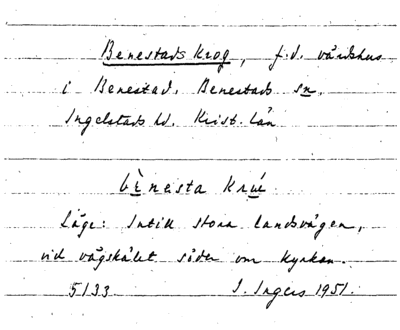 Benestads krog, f.d. värdshus
i Benestad. Benestads sn.
Ingelstads hd. Krist. län
bènesta kru
Läge: Intill stora landsvägen,
vid vägskälet söder om kyrkan.
5133. I. Ingers 1951.